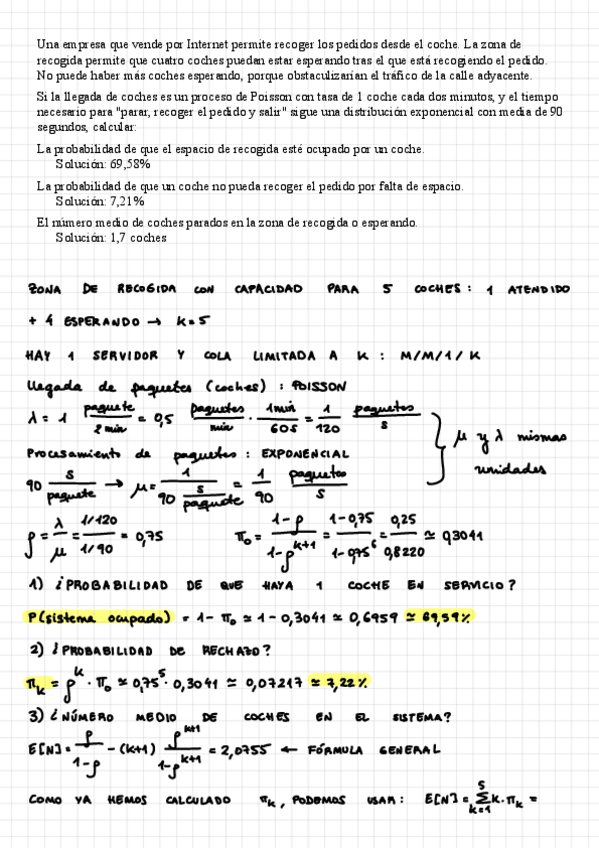 Una empresa que vende por Internet permite recoger los pedidos desde el coche. La zona de
recogida permite que cuatro coches puedan estar esperando tras el que está recogiendo el pedido.
No puede haber más coches esperando, porque obstaculizarían el tráfico de la calle adyacente.
Si la llegada de coches es un proceso de Poisson con tasa de 1 coche cada dos minutos, y el tiempo
necesario para "parar, recoger el pedido y salir" sigue una distribución exponencial con media de 90
segundos, calcular:
La probabilidad de que el espacio de recogida esté ocupado por un coche.
Solución: 69,58%
La probabilidad de que un coche no pueda recoger el pedido por falta de espacio.
Solución: 7,21%
El número medio de coches parados en la zona de recogida o esperando.
Solución: 1,7 coches
ZONA DE RECOGIDA CON CAPACIDAD PARA 5 COCHES: 1 ATENDIDO
+ 4 ESPERANDO → K=5
HAY 1 SERVIDOR Y COLA LIMITADA A K: M/M/1/K
llegada de paquetes (coches): POISSON
λ = 1 paquete/2 min = 0,5 paquetes/min · 1min/60s = 1/120 paquetes/s
Procesamiento de paquetes: EXPONENCIAL
μ y λ mismas unidades
90 s/paquete → μ = 1/(90 s/paquete) = 1/90 paquetes/s
ρ = λ/μ = (1/120)/(1/90) = 0,75 π₀ = (1-ρ)/(1-ρ^(k+1)) = (1-0,75)/(1-0,75⁶) = 0,25/0,8220 ≃ 0,3041
1) ¿PROBABILIDAD DE QUE HAYA 1 COCHE EN SERVICIO?
P(sistema ocupado) = 1- π₀ ≃ 1-0,3041 ≃ 0,6959 ≃ 69,59%
2) ¿PROBABILIDAD DE RECHAZO?
π_k = ρ^k · π₀ ≃ 0,75⁵ · 0,3041 ≃ 0,07217 ≃ 7,22%
3) ¿NÚMERO MEDIO DE COCHES EN EL SISTEMA?
E[N] = ρ/(1-ρ) - (k+1) ρ^(k+1)/(1-ρ^(k+1)) = 2,0755 ← FÓRMULA GENERAL
COMO YA HEMOS CALCULADO π_k, PODEMOS USAR: E[N] = Σ_(k=1)^5 k·π_k =